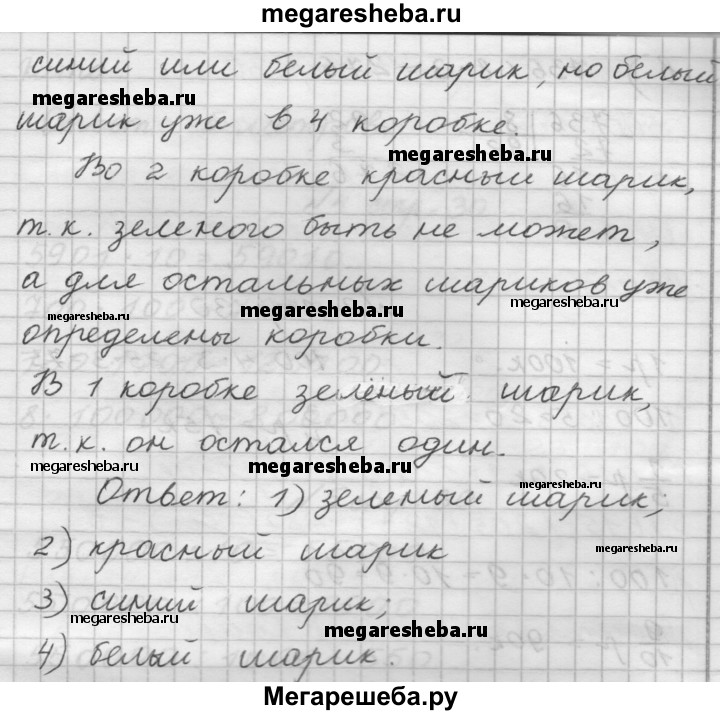 megaresheba.ru
синий или белый шарик, но белый
megaresheba.ru
шарик уже в 4 коробке.
megaresheba.ru
Во 2 коробке красный шарик,
т.к. зеленого быть не может,
а для остальных шариков уже
megaresheba.ru
megaresheba.ru
megaresheba.ru
определены коробки.
В 1 коробке зелёный шарик,
т.к. он остался один.
megaresheba.ru
megaresheba.ru
Ответ: 1) зеленый шарик;
megaresheba.ru
2) красный шарик
megaresheba.ru
3) синий шарик;
megaresheba.ru
megaresheba.ru
4) белый шарик.
Мегарешеба.ру